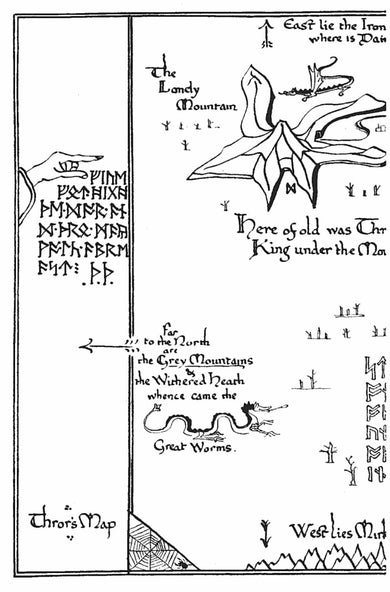 East lie the Iron
where is Dain
The
Lonely
Mountain
ᚠᛁᚢᛖ
ᚠᛟᛏ᛫ᚻᛁᚷᚻ
ᚦᛖ᛫ᛞᚩᚱ᛫ᚪᚾ
ᛞ᛫ᚦᚱᛟ᛫ᛗᚪᚣ
ᚹᚪᛚᚳ᛫ᚪᛒᚱᛖ
ᚪᛋᛏ᛬ ᚦ᛫ᚦ᛫
ᛞ
Here of old was Thr
King under the Mou
Far
to the North
are
the Grey Mountains
&
the Withered Heath
whence came the
Great Worms.
Thror's Map
West lies Mirk